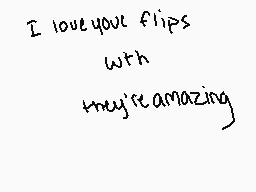 I love youe flips
wth
they're amazing